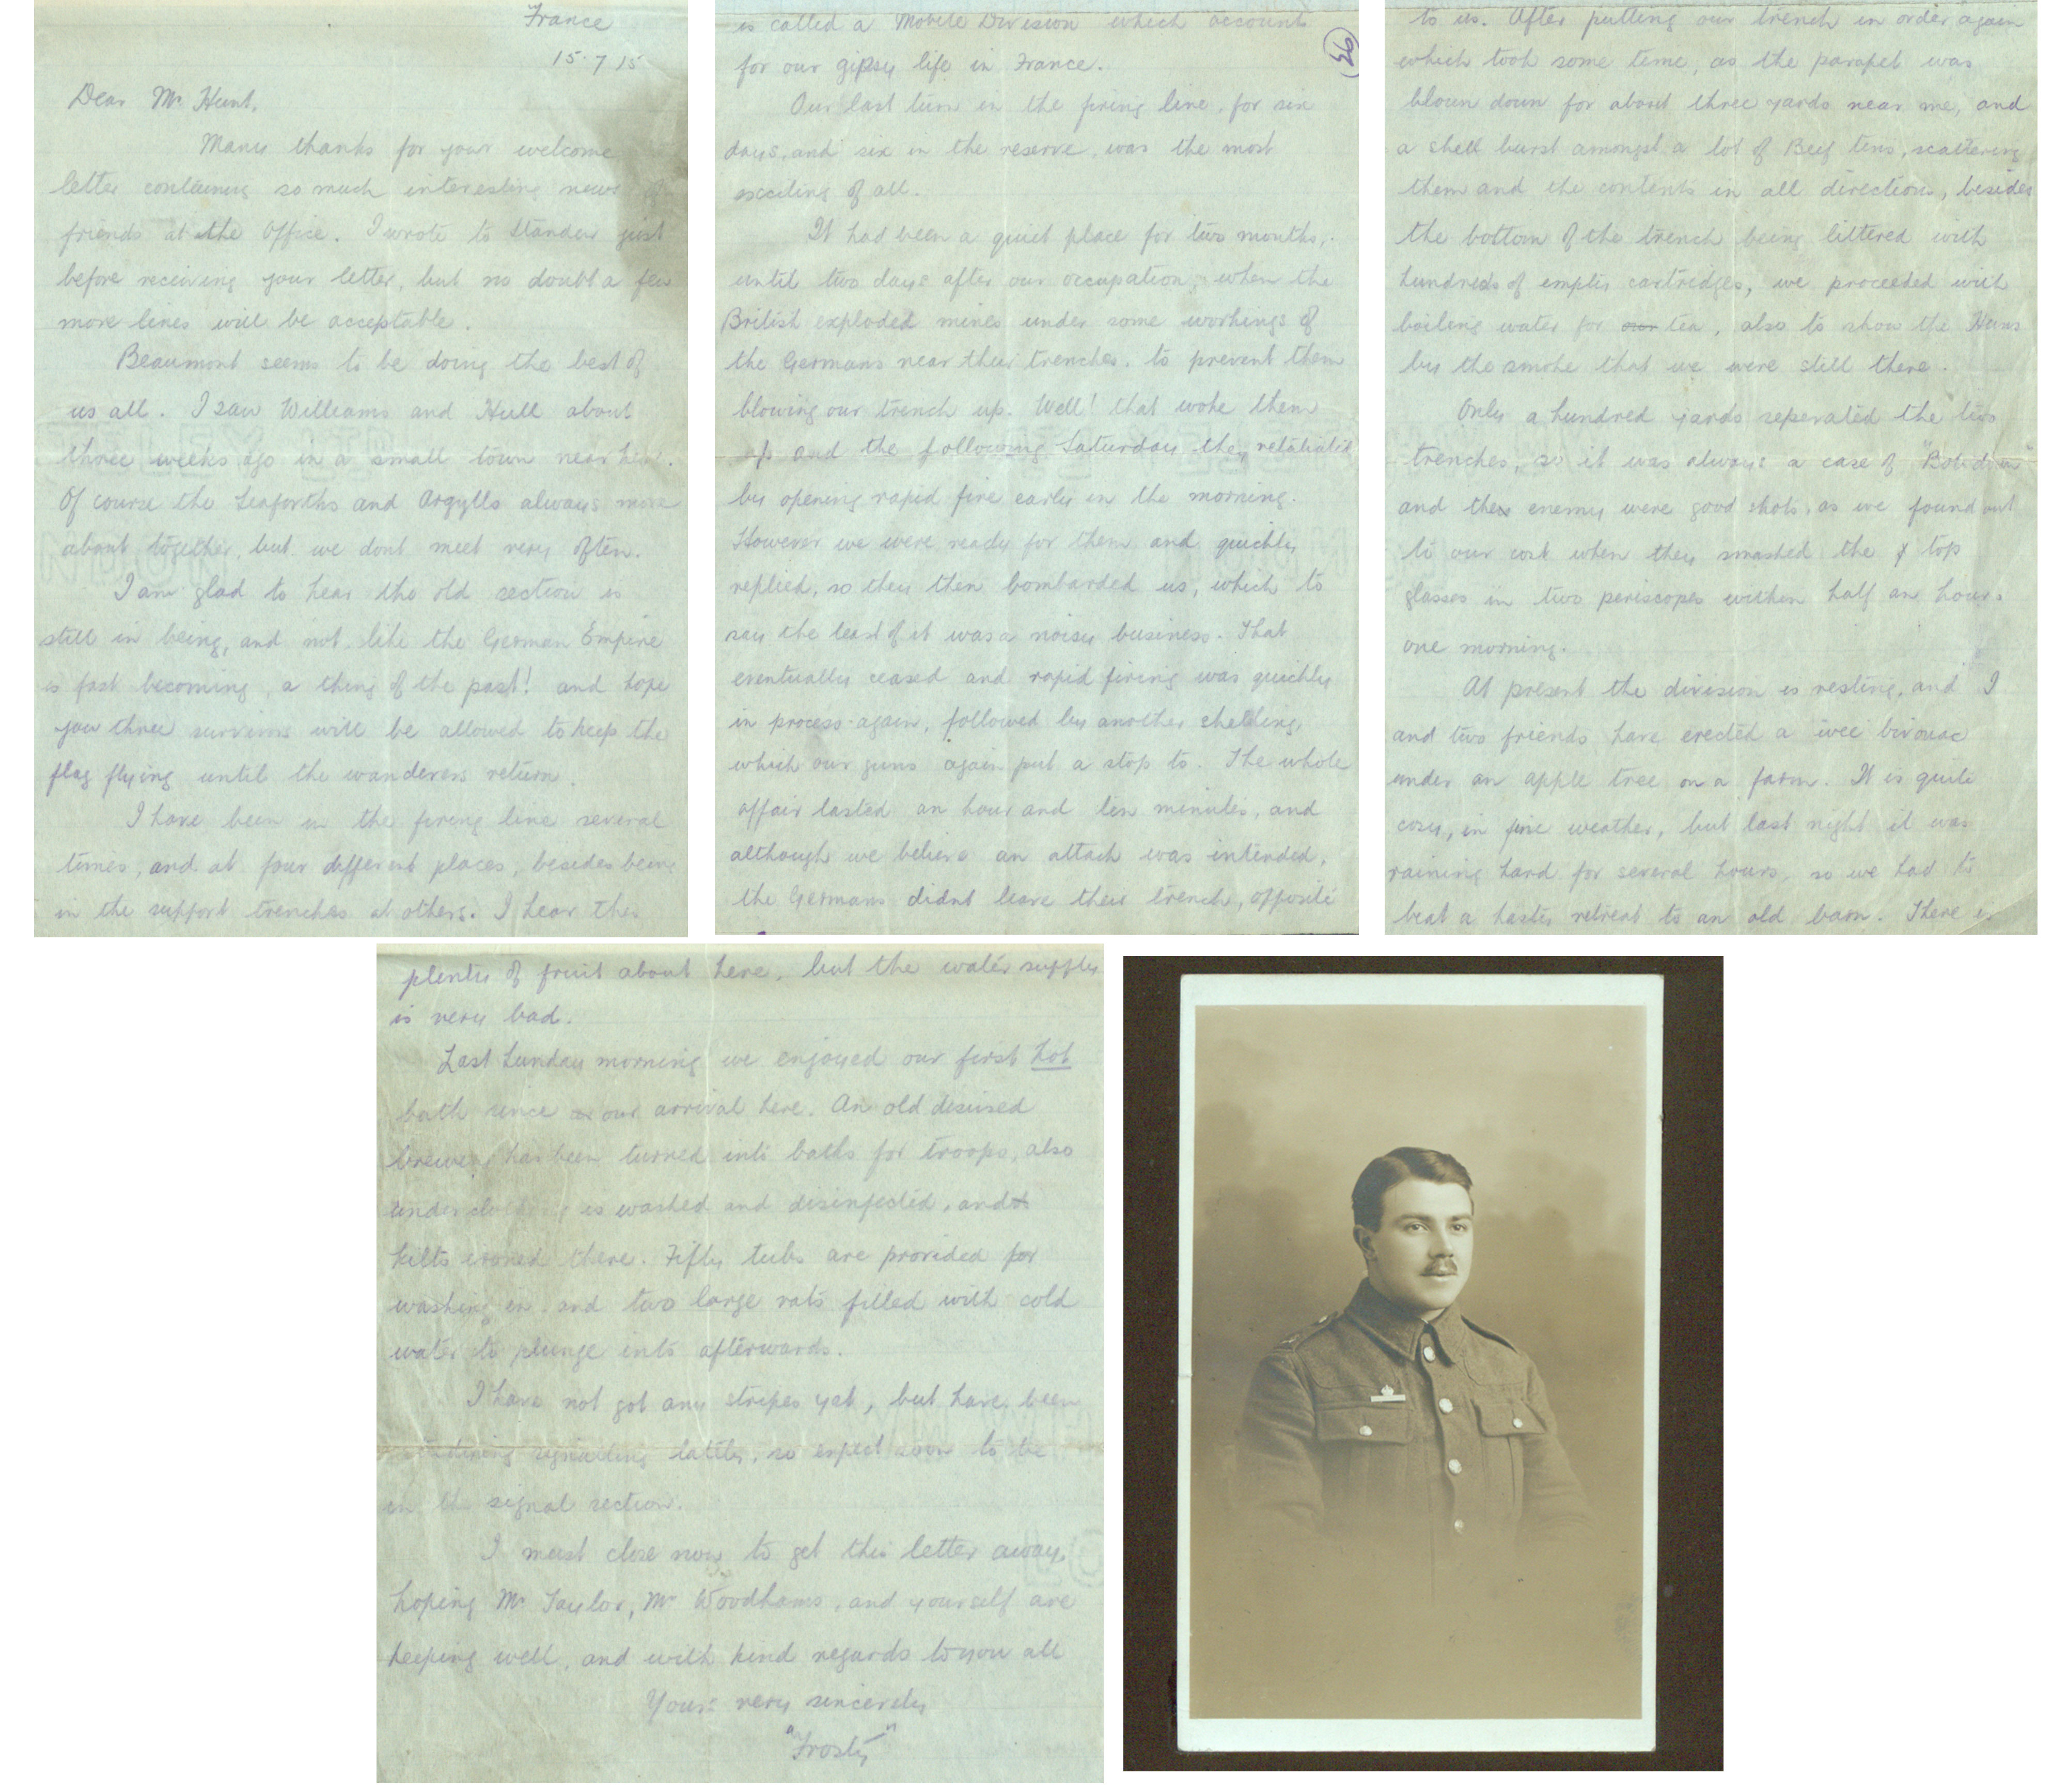 France
15.7.15
Dear Mr Hunt,
Many thanks for your welcome
letter containing so much interesting news of
friends at the Office. I wrote to Stander just
before receiving your letter, but no doubt a few
more lines will be acceptable.
Beaumont seems to be doing the best of
us all. I saw Williams and Hull about
three weeks ago in a small town near here.
Of course the Seaforths and Argylls always move
about together, but we dont meet very often.
I am glad to hear the old section is
still in being, and not like the German Empire
is fast becoming, a thing of the past! and hope
you three survivors will be allowed to keep the
flag flying until the wanderers return.
I have been in the firing line several
times, and at four different places, besides being
in the support trenches at others. I hear this
is called a Mobile Division which account
for our gipsy life in France.
Our last turn in the firing line, for six
days, and six in the reserve, was the most
exciting of all.
It had been a quiet place for two months,
until two days after our occupation, when the
British exploded mines under some workings of
the Germans near their trenches, to prevent them
blowing our trench up. Well! that woke them
up and the following Saturday they retaliated
by opening rapid fire early in the morning.
However we were ready for them and quickly
replied, so they then bombarded us, which to
say the least of it was a noisy business. That
eventually ceased and rapid firing was quickly
in process again, followed by another shelling,
which our guns again put a stop to. The whole
affair lasted an hour and ten minutes, and
although we believe an attack was intended,
the Germans didnt leave their trench, opposite
to us. After putting our trench in order again
which took some time, as the parapet was
blown down for about three yards near me, and
a shell burst amongst a lot of Beef tins, scattering
them and the contents in all directions, besides
the bottom of the trench being littered with
hundreds of empty cartridges, we proceeded with
boiling water for our tea, also to show the Huns
by the smoke that we were still there.
Only a hundred yards seperated the two
trenches, so it was always a case of "Bob down"
and the enemy were good shots, as we found out
to our cost when they smashed the top
glasses in two periscopes within half an hour
one morning.
At present the division is resting, and I
and two friends have erected a wee bivouac
under an apple tree on a farm. It is quite
cosy, in fine weather, but last night it was
raining hard for several hours, so we had to
beat a hasty retreat to an old barn. There is
plenty of fruit about here, but the water supply
is very bad.
Last Sunday morning we enjoyed our first hot
bath since our arrival here. An old disused
brewery has been turned into baths for troops, also
underclothing is washed and disinfected, and
kilts ironed there. Fifty tubs are provided for
washing in and two large vats filled with cold
water to plunge into afterwards.
I have not got any stripes yet, but have been
studying signalling lately, so expect soon to be
in the signal section.
I must close now to get this letter away,
hoping Mr Taylor, Mr Woodhams, and yourself are
keeping well, and with kind regards to you all
Yours very sincerely
"Frosty"